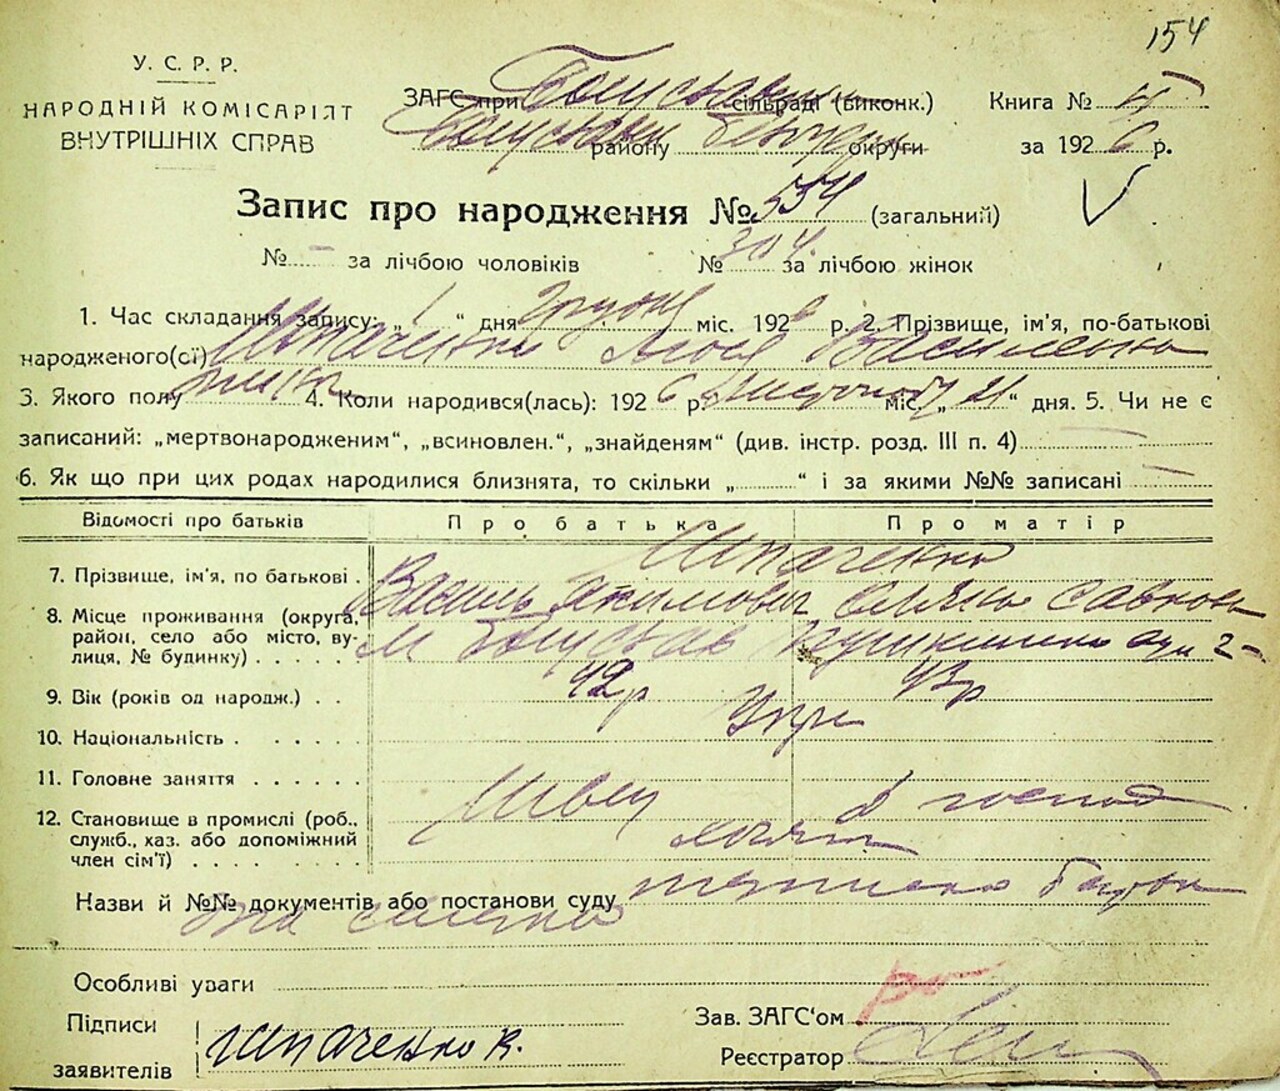 154
У. С. Р. Р.
НАРОДНІЙ КОМІСАРІЯТ
ВНУТРІШНІХ СПРАВ
ЗАГС при сільраді (виконк.)
району округи
Книга №
за 1926 р.
Запис про народження № 554 (загальний)
№ – за лічбою чоловіків № 304 за лічбою жінок
1. Час складання запису: „ 1 “ дня грудня міс. 1926 р. 2. Прізвище, ім'я, по-батькові
народженого(сї) Шпаченко Василевна
3. Якого полу жіноч. 4. Коли народився(лась): 1926 р. листопаду міс. „ 21 “ дня. 5. Чи не є
записаний: „мертвонародженим“, „всиновлен.“, „знайденям“ (див. інстр. розд. III п. 4) —
6. Як що при цих родах народилися близнята, то скільки „ “ і за якими №№ записані —
Відомості про батьків Про батька Про матір
Шпаченко
7. Прізвище, ім'я, по батькові . Василь Якимович
8. Місце проживання (округа,
район, село або місто, ву-
лиця, № будинку) . . . . . м Богуслав
9. Вік (років од народж.) . . 42 р 43 р
10. Національність . . . . . . Укр
11. Головне заняття . . . . . . швец
12. Становище в промислі (роб.,
служб., хаз. або допоміжний
член сім'ї) . . . . . . . хазяін
Назви й №№ документів або постанови суду
Особливі уваги
Підписи
заявителів Шпаченко В.
Зав. ЗАГС‘ом
Реєстратор